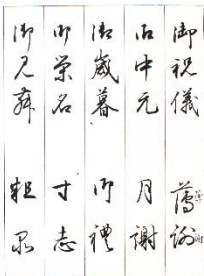 御祝儀
薄謝
御中元
月謝
御歳暮
御禮
御栄名
寸志
御見舞
粗品